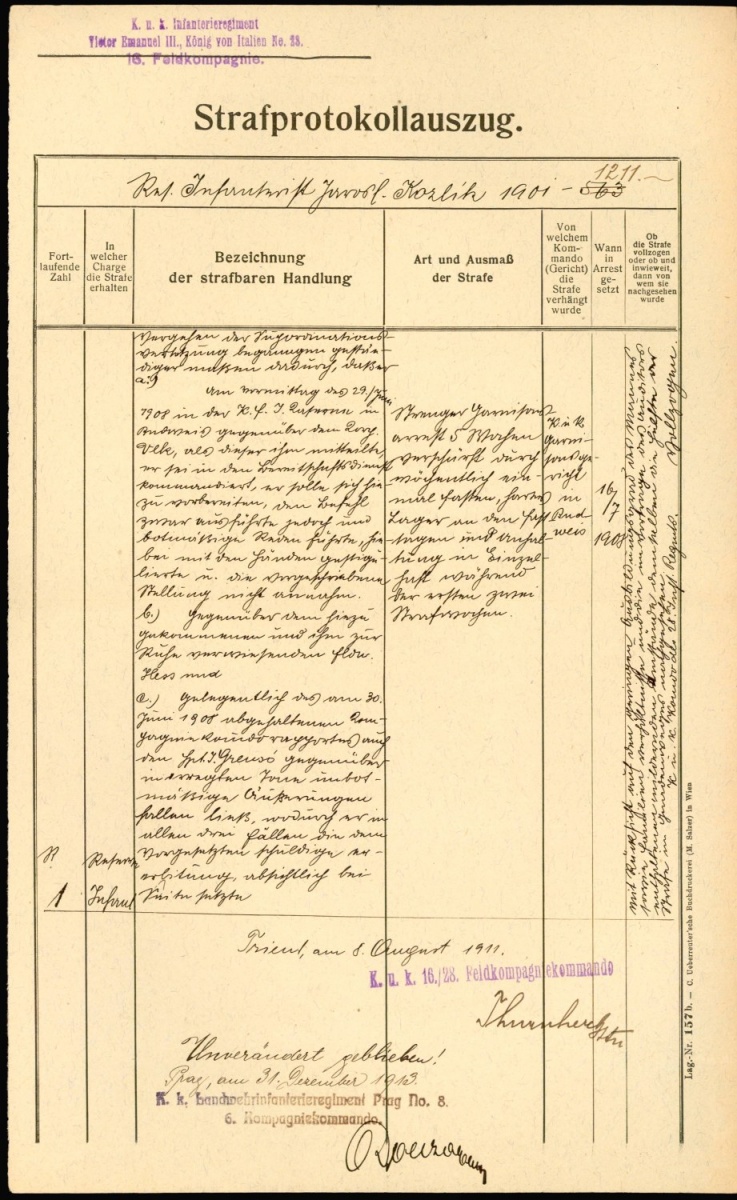 K. u. k. Infanterieregiment
Victor Emanuel III., König von Italien No. 28.
16. Feldkompagnie.
Strafprotokollauszug.
1211.
Res. Infanterist Jarosl. Kozlik 1901 – 563
Fort-
laufende
Zahl
In
welcher
Charge
die Strafe
erhalten
Bezeichnung
der strafbaren Handlung
Art und Ausmaß
der Strafe
Von
welchem
Kom-
mando
(Gericht)
die
Strafe
verhängt
wurde
Wann
in
Arrest
ge-
setzt
Ob
die Strafe
vollzogen
oder ob und
inwieweit,
dann von
wem sie
nachgesehen
wurde
1
Reserve
Infant
Vergehen der
begangen gestän-
diger maßen dadurch, daß er
a.)
Am Vormittag des 29. Juni
1908 in der Kaserne in
Budweis gegenüber dem Korp.
Vlk, als dieser ihm mitteilte,
er sei in den Bereitschaftsdienst
kommandiert, er solle sich hie-
zu vorbereiten, den Befehl
zwar ausführte jedoch un-
botmäßige Reden führte, hie-
bei mit den Händen gestiku-
lierte u. die vorgeschriebene
Stellung nicht annahm.
b.) Gegenüber dem hiezu
gekommenen und ihn zur
Ruhe verweisenden
Hess und
c.) Gelegentlich des am 30.
Juni 1908 abgehaltenen Kom-
pagniekomdorapportes auch
den gegenüber
in erregten Tone unbot-
mäßige Äußerungen
fallen ließ, wodurch er in
allen drei Fällen die dem
Vorgesetzten schuldige Er-
absichtlich bei
Seite setzte
Strenger Garnisons-
arrest 5 Wochen
verschärft durch
wöchentlich ein-
mal Fasten, hartes
Lager an den Fast-
tagen und Anhal-
tung in Einzel-
haft während
der ersten zwei
Strafwochen.
K u k
Garni-
sonsge-
richt
in
Bud-
weis
16/
7
1908
Mit Rücksicht auf den geringen Ausbildungsgrad des Mannes
sowie Familien Verhältnisse und die im Vortrage des Auditors
enthaltenen mildernden Umstände, demselben die Hälfte der
Strafe im Gnadenwege nachgesehen.
K. u. k. Komdo des 28. Inft. Regmts. Vollzogen.
Trient, am 8. August 1911.
K. u. k. 16./28. Feldkompagniekommando
Unverändert geblieben!
Prag, am 31. Dezember 1913.
K. k. Landwehrinfanterieregiment Prag No. 8.
6. Kompagniekommando.
Lag.-Nr. 157 b. — C. Ueberreuter'sche Buchdruckerei (M. Salzer) in Wien